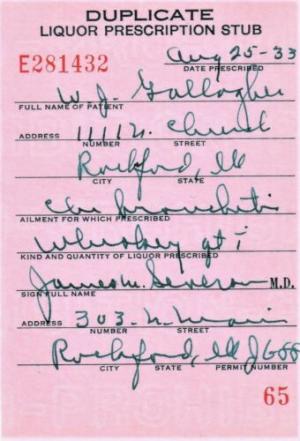 DUPLICATE
LIQUOR PRESCRIPTION STUB
E281432
Aug 25-33
DATE PRESCRIBED
W. J. Gallagher
FULL NAME OF PATIENT
ADDRESS 1111 N. Church
NUMBER STREET
Rockford, Ill
CITY STATE
Chr bronchitis
AILMENT FOR WHICH PRESCRIBED
Whiskey qt i
KIND AND QUANTITY OF LIQUOR PRESCRIBED
James M. Severson M.D.
SIGN FULL NAME
ADDRESS 303. N. Main
NUMBER STREET
Rockford, Ill
CITY STATE PERMIT NUMBER
65